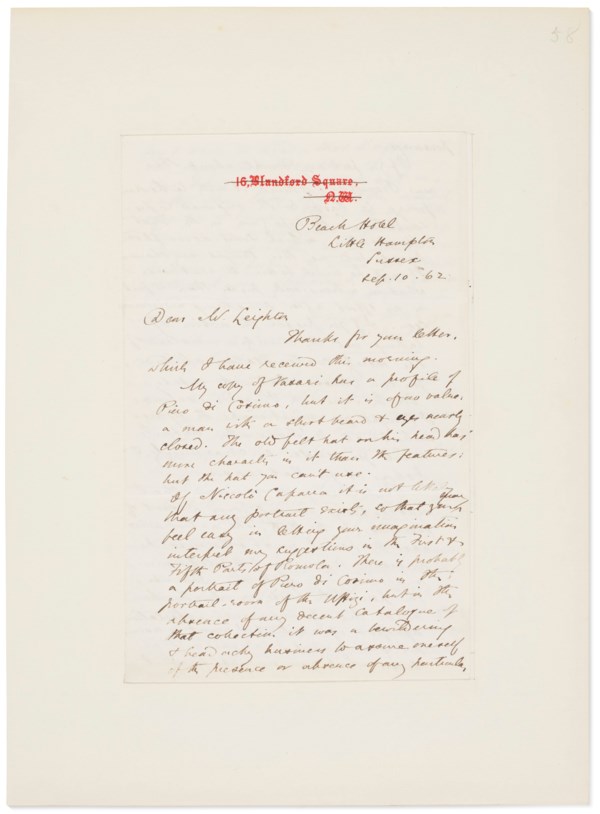 58
16, Blandford Square,
N.W.
Beach Hotel
Little Hampton
Sussex
Sep. 10. 62
Dear Mr Leighton
Thanks for your letter,
which I have received this morning.
My copy of Vasari has a profile of
Piero di Cosimo, but it is of no value,
a man with a short beard & eyes nearly
closed. The old felt hat on his head has
more character in it than the features:
but the hat you can't use.
Of Niccolò Caparra it is not
that any portrait exists, so that you may
feel easy in letting your imagination
interpret my suggestions in the First &
Fifth Parts of Romola. There is probably
a portrait of Piero di Cosimo in the
portrait-room of the Uffizi, but in the
absence of any decent catalogue of
that collection it was a bewildering
& headachy business to assure oneself
of the presence or absence of any particular